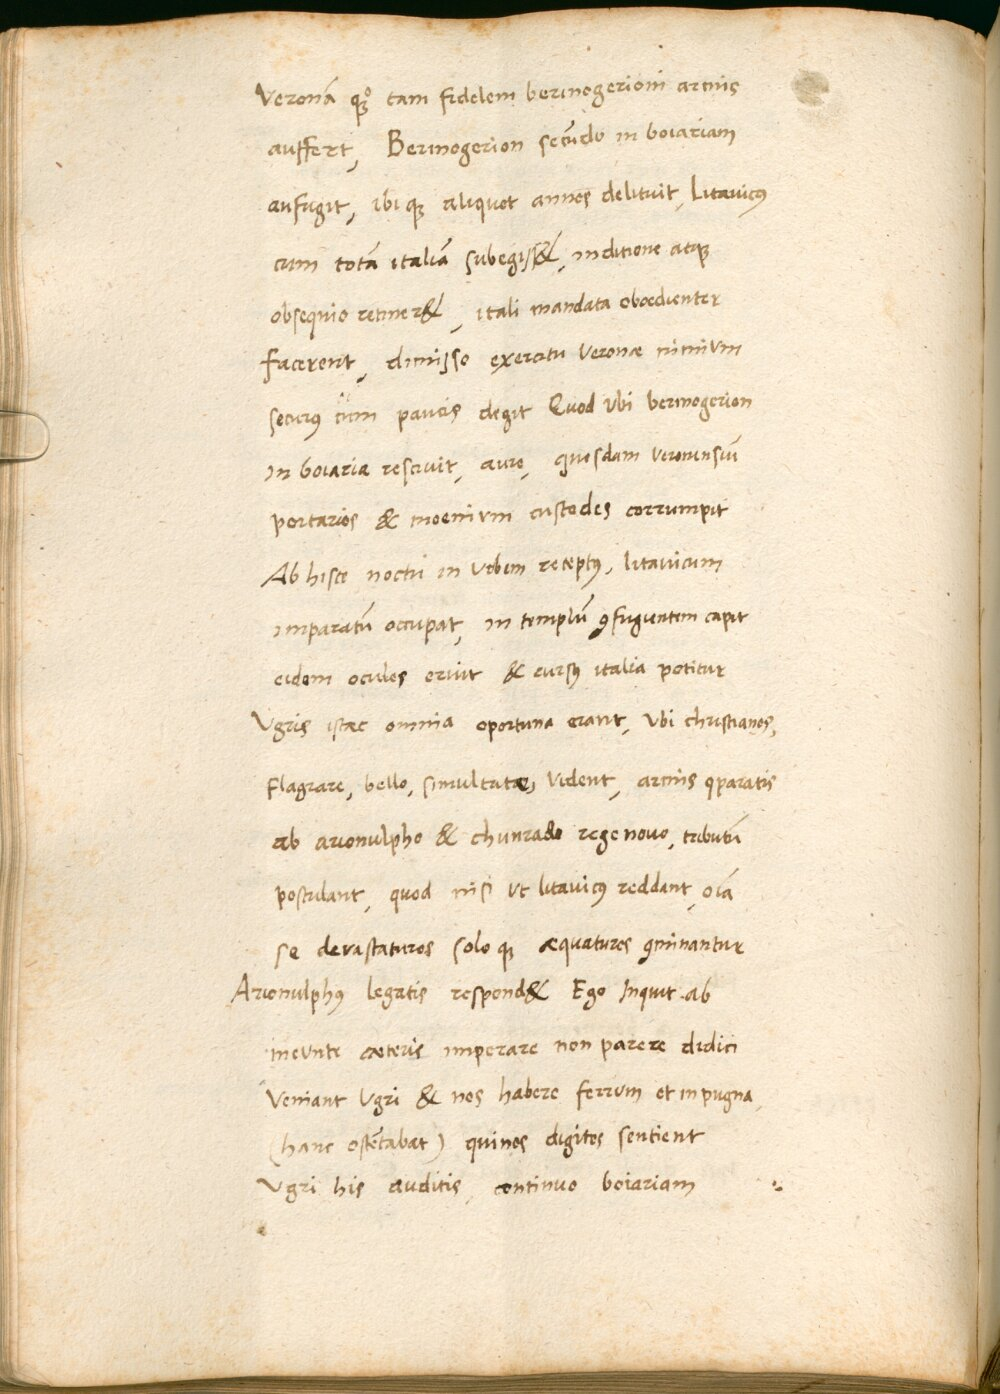 Veronā qꝫº tam fidelem bermogerioni armis
auffert, Bermogerion secūdo in boiariam
aufugit, ibi qꝫ aliquot annos delituit, Litauicꝰ
cum totā italiā subegiss&, inditione atqꝫ
obsequio retiner&, itali mandata oboedienter
facerent, dimisso exercitu Veronæ nimivm
securꝰ cum paucis degit Quod Vbi bermogerion
in boiaria resciuit, auro, quosdam Veronensiū
portarios & moenivm custodes corrumpit
Ab hisce noctu in Vrbem receptꝰ, litauicum
imparatū occupat, in templū ꝯfugientem capit
eidem oculos eruit & rursꝰ italia potitur
Vgris istæc omnia oportuna erant, Vbi christianos,
flagrare, bello, simultate, Vident, armis ꝯparatis
ab arionulpho & chunrado rege nouo, tributū
postulant, quod nisi Vt litauicꝰ reddant, oīa
se devastaturos solo qꝫ æquaturos ꝯminantur
Arionulphꝰ legatis respond& Ego Inquit ab
ineunte cæteris imperare non parere didici
Veniant Vgri & nos habere ferrum et in pugna
(hanc ostētabat) quinos digitos sentient
Vgri his auditis, continuo boiariam